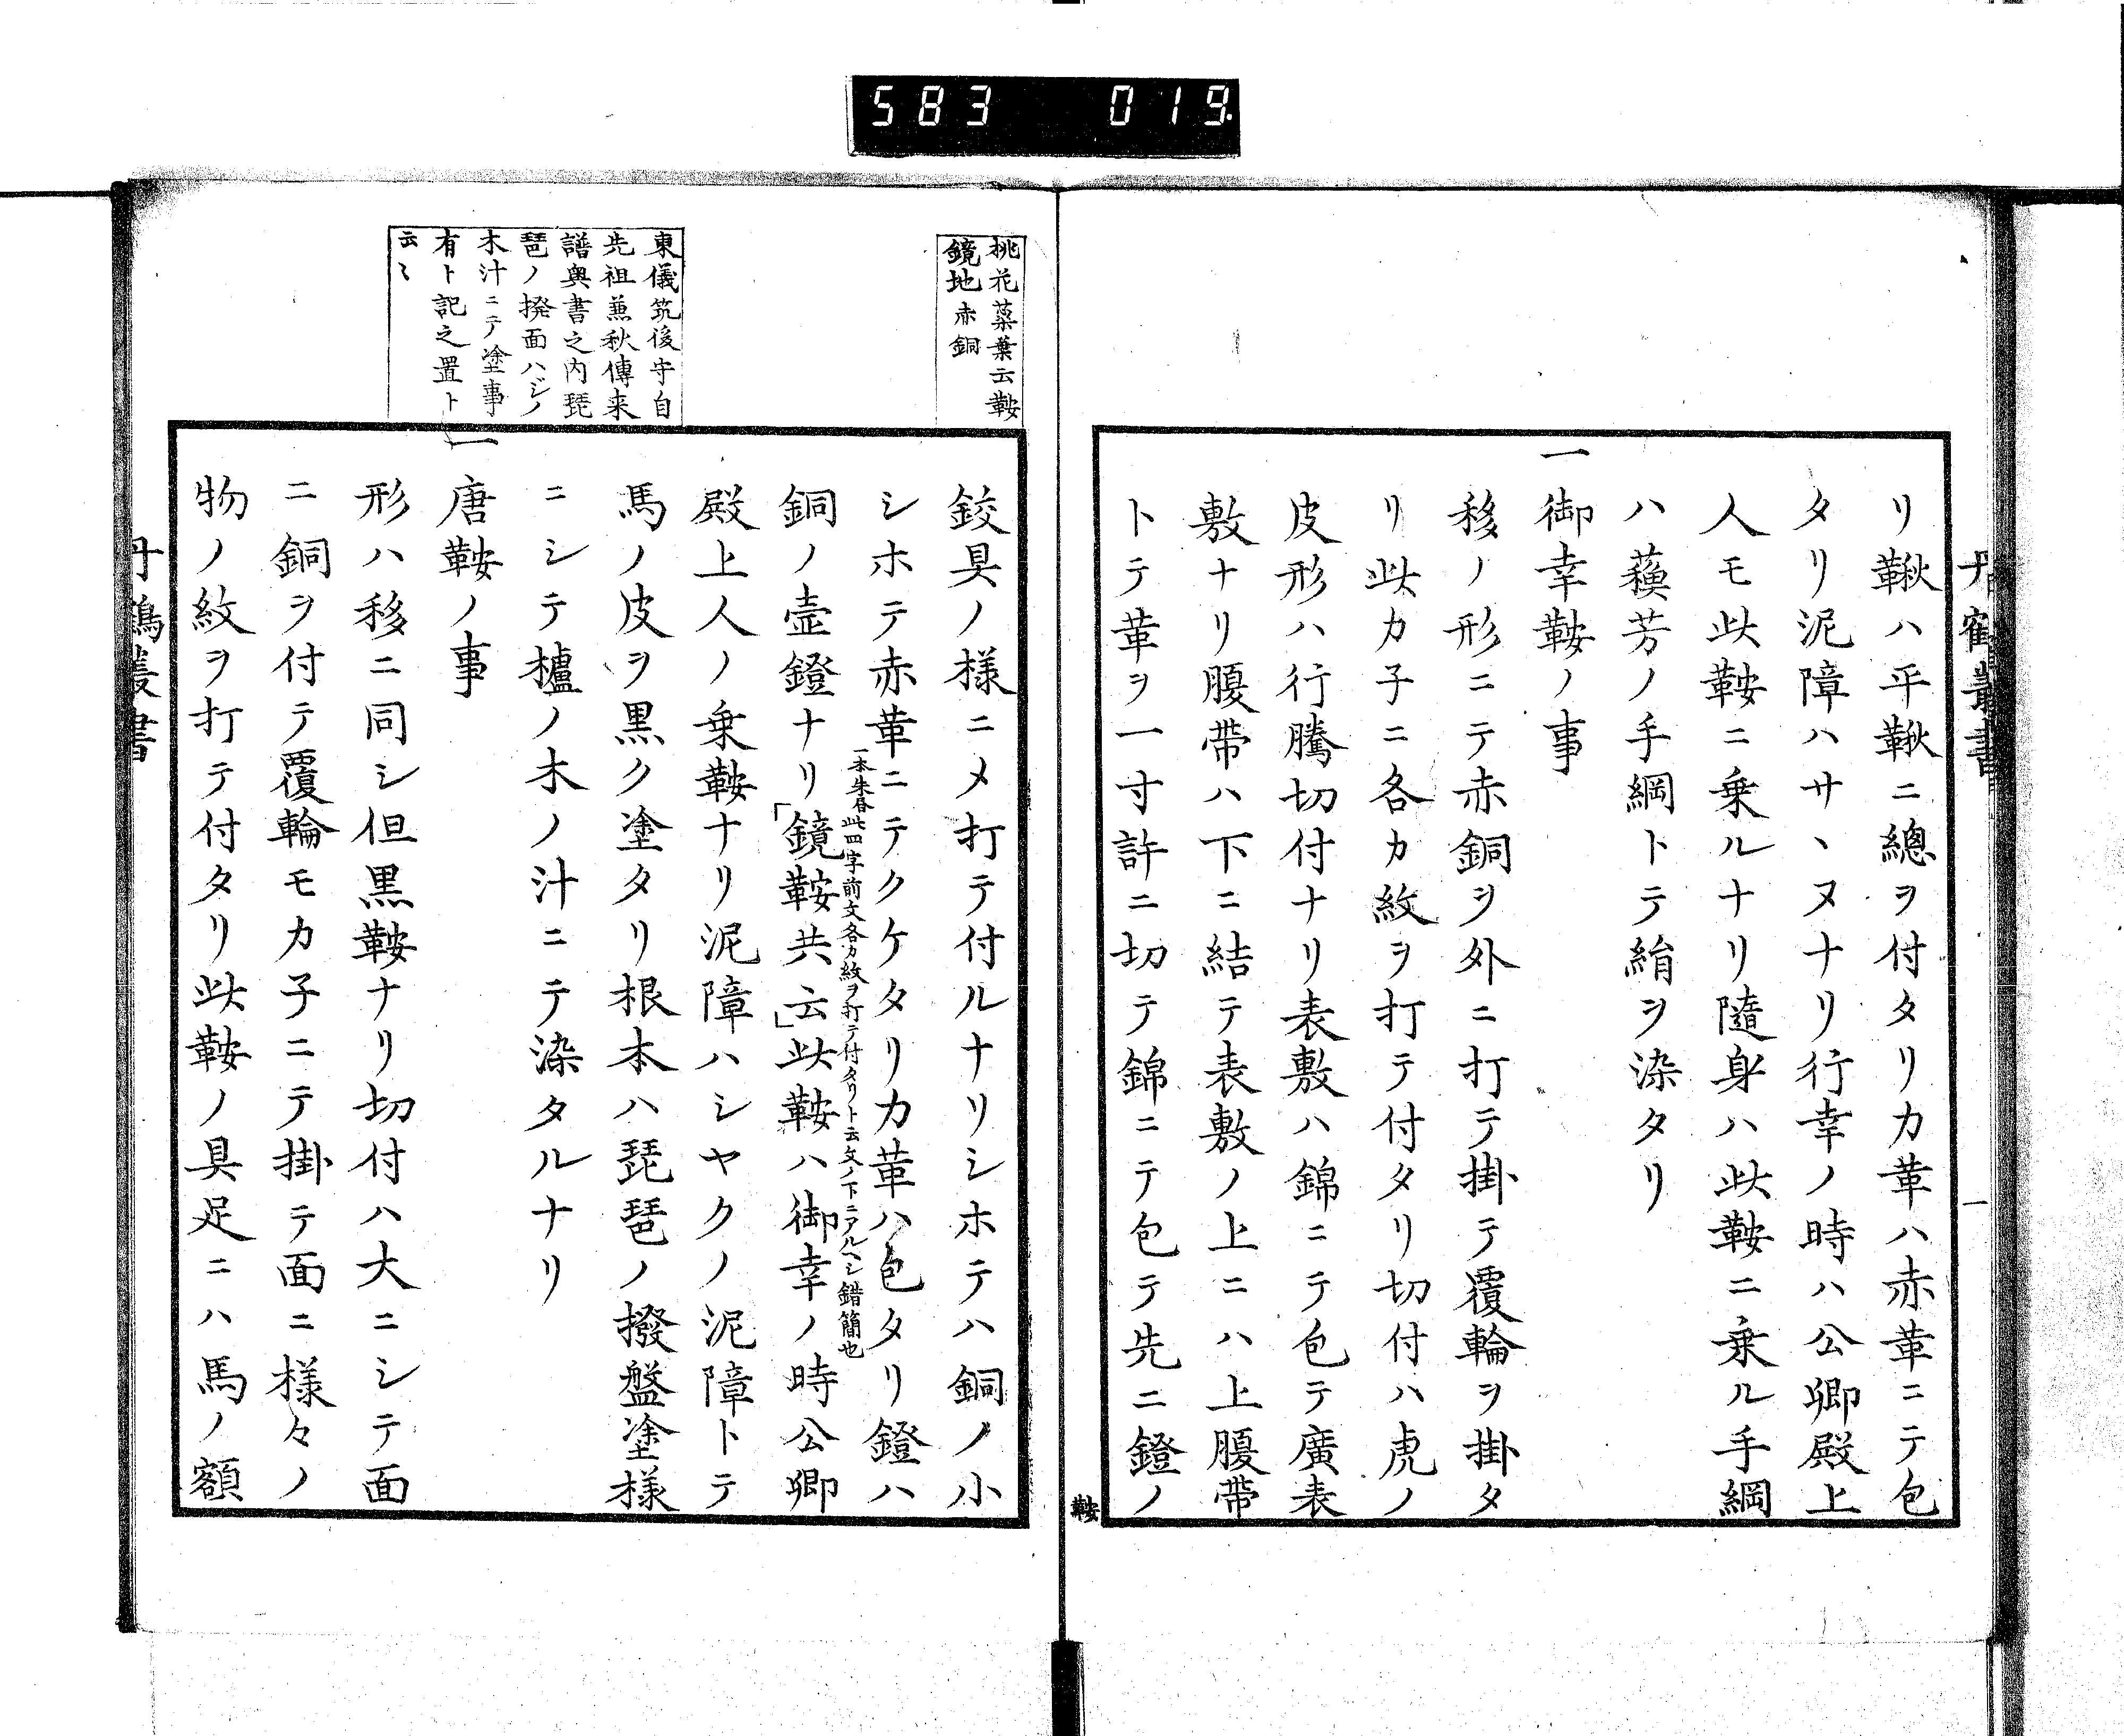 583 019
丹鶴叢書
リ鞦ハ平鞦ニ總ヲ付タリカ革ハ赤革ニテ包
タリ泥障ハサヽヌナリ行幸ノ時ハ公卿殿上
人モ此鞍ニ乗ルナリ隨身ハ此鞍ニ乗ル手綱
ハ蘓芳ノ手綱トテ絹ヲ染タリ
一御幸鞍ノ事
移ノ形ニテ赤銅ヲ外ニ打テ掛テ覆輪ヲ掛タ
リ此カ子ニ各カ紋ヲ打テ付タリ切付ハ虎ノ
皮形ハ行騰切付ナリ表敷ハ錦ニテ包テ廣表
敷ナリ腹帶ハ下ニ結テ表敷ノ上ニハ上腹帶
トテ革ヲ一寸許ニ切テ錦ニテ包テ先ニ鐙ノ
一
鞍
桃花蘂葉云鞍
鏡地赤銅
鉸具ノ様ニメ打テ付ルナリシホテハ銅ノ小
シホテ赤革ニテクケタリカ革ハ包タリ鐙ハ
一本朱書此四字前文各カ紋ヲ打テ付タリト云文ノ下ニアルヘシ錯簡也
銅ノ壷鐙ナリ「鏡鞍共云」此鞍ハ御幸ノ時公卿
殿上人ノ乗鞍ナリ泥障ハシヤクノ泥障トテ
馬ノ皮ヲ黒ク塗タリ根本ハ琵琶ノ撥盤塗様
ニシテ櫨ノ木ノ汁ニテ染タルナリ
東儀筑後守自
先祖兼秋傳来
譜奥書之内琵
琶ノ撥面ハジノ
木汁ニテ塗事
有ト記之置ト
云〻
一唐鞍ノ事
形ハ移ニ同シ但黒鞍ナリ切付ハ大ニシテ面
ニ銅ヲ付テ覆輪モカ子ニテ掛テ面ニ様々ノ
物ノ紋ヲ打テ付タリ此鞍ノ具足ニハ馬ノ額
丹鶴叢書